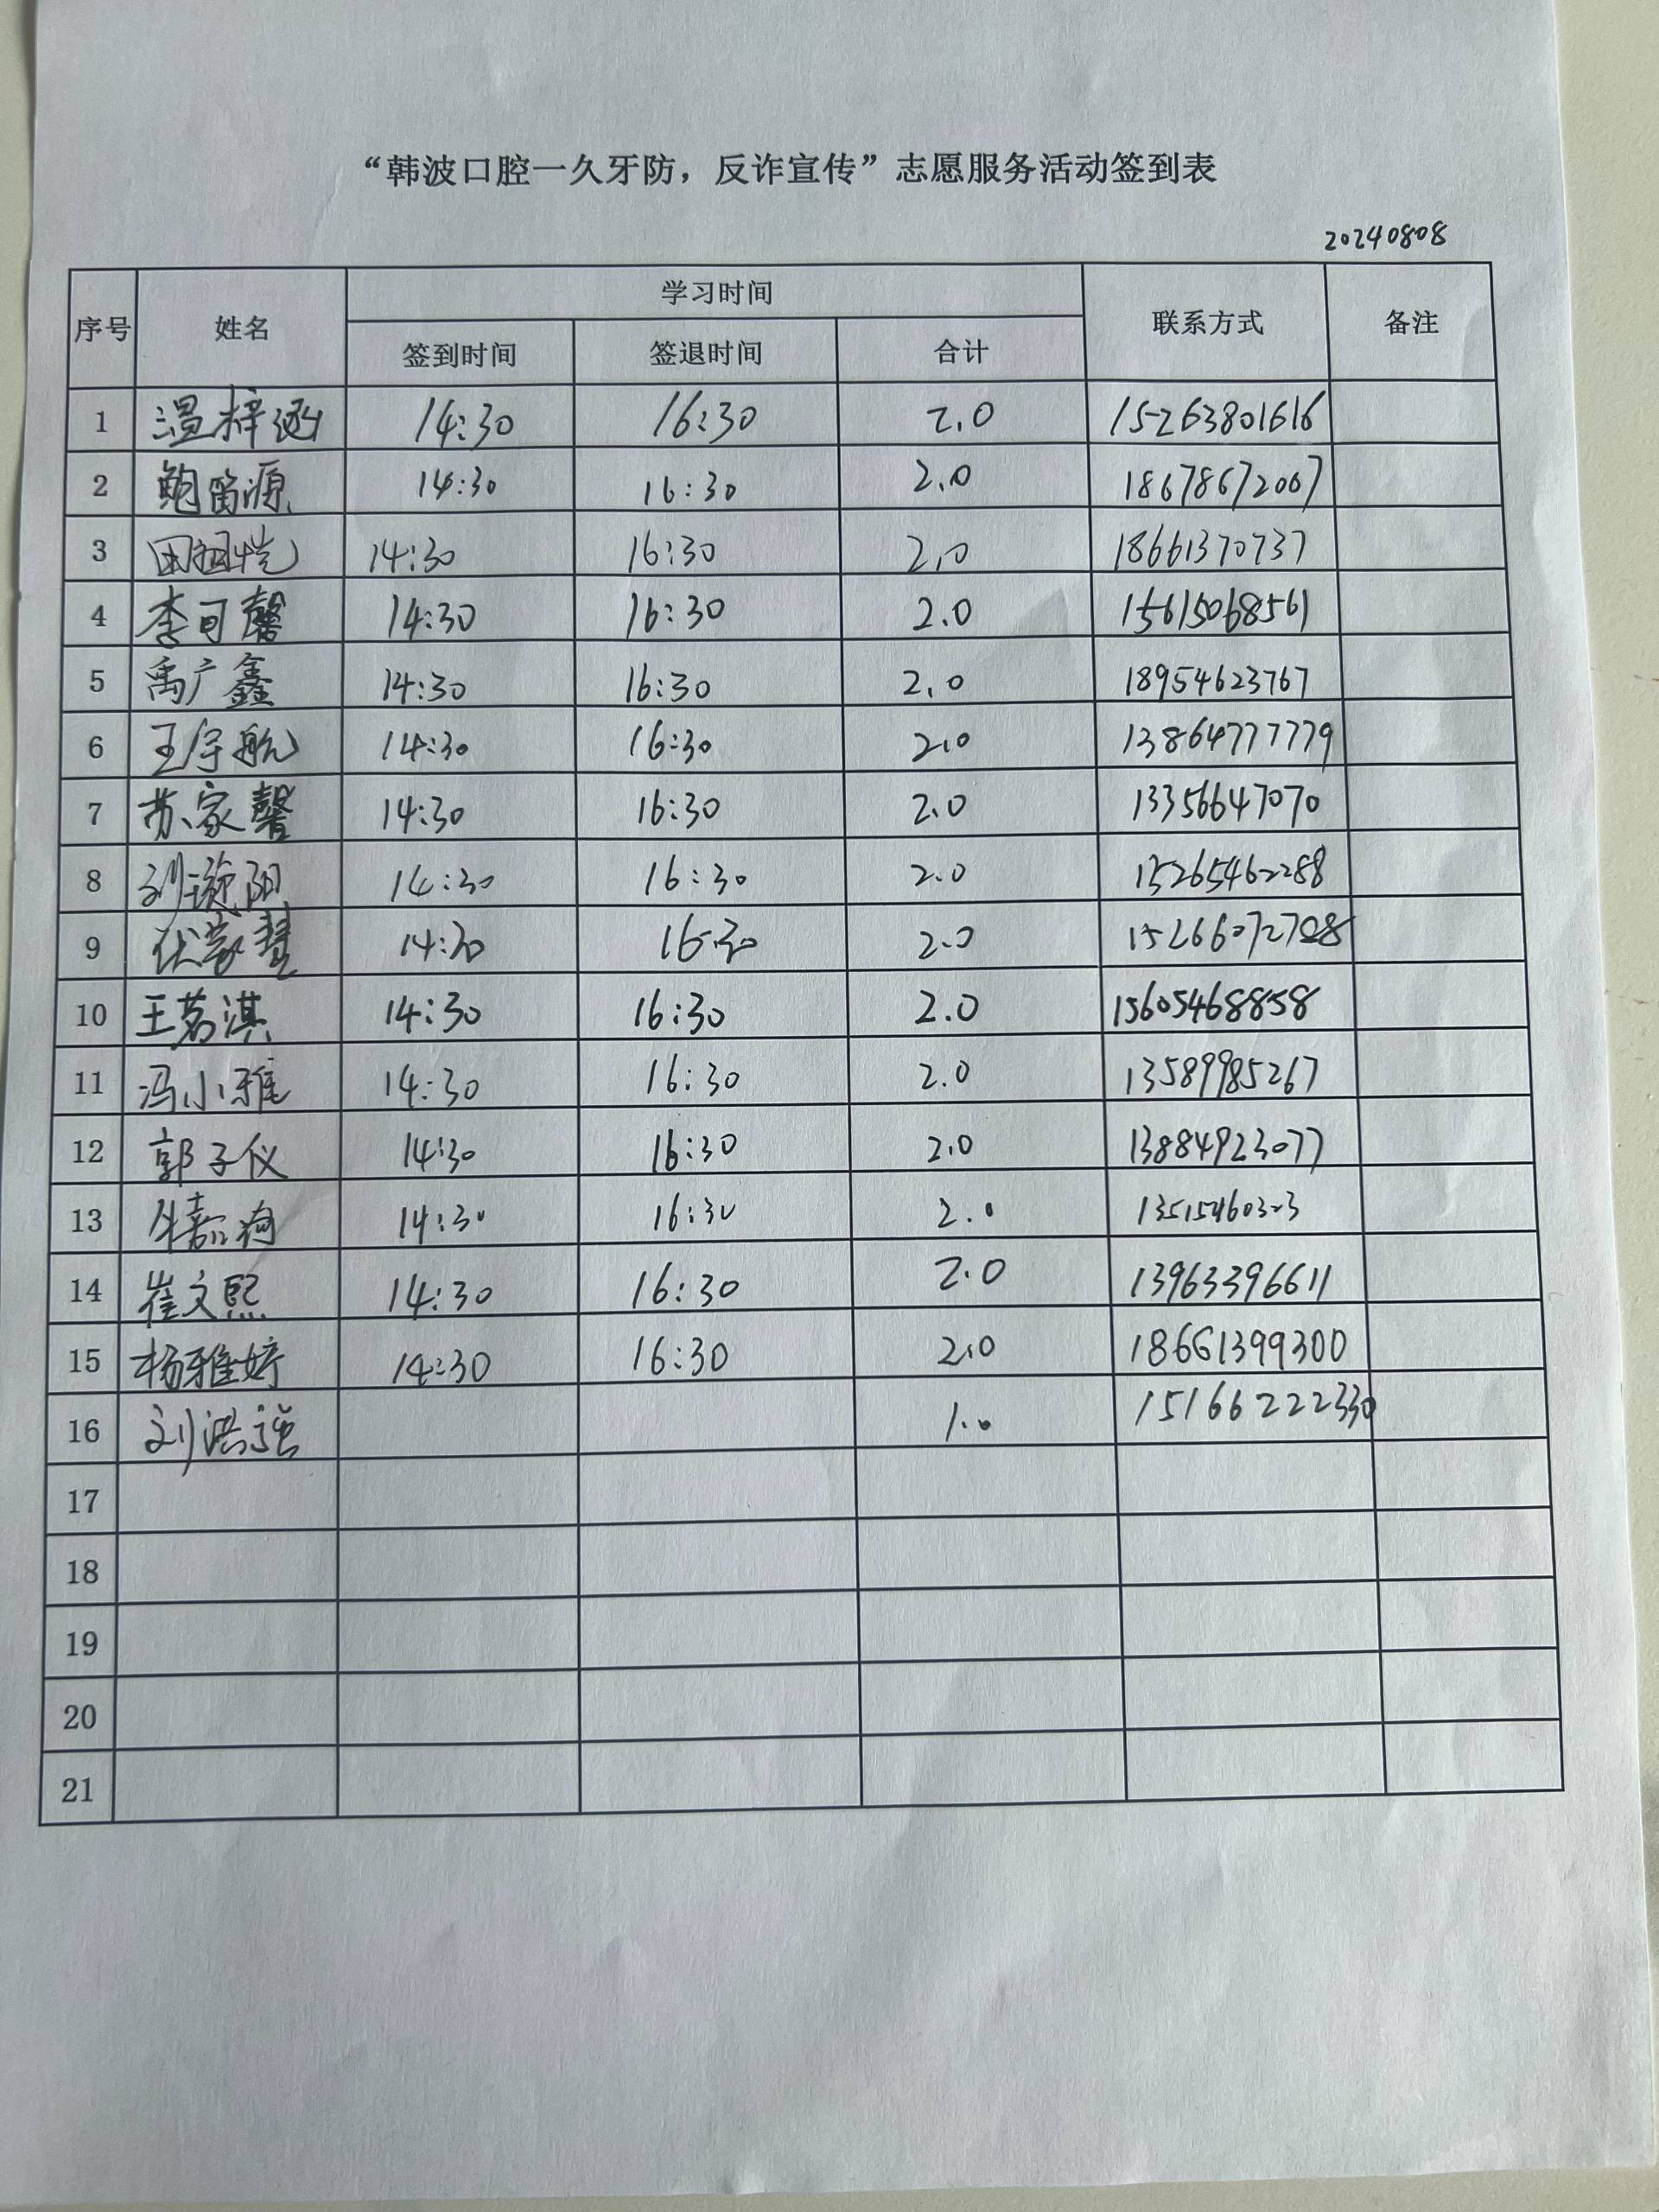 “韩波口腔一久牙防，反诈宣传”志愿服务活动签到表
20240808
序号 姓名 学习时间 联系方式 备注
签到时间 签退时间 合计
1 温梓涵 14:30 16:30 2.0 15263801616
2 鲍笛源 14:30 16:30 2.0 18678672007
3 田祖恺 14:30 16:30 2.0 18661370737
4 李可馨 14:30 16:30 2.0 15615068561
5 禹广鑫 14:30 16:30 2.0 18954623767
6 王宇航 14:30 16:30 2.0 13864777779
7 苏家馨 14:30 16:30 2.0 13356647070
8 刘璇阳 14:30 16:30 2.0 15265462288
9 14:30 16:30 2.0
10 王茗淇 14:30 16:30 2.0 15605468858
11 冯小雅 14:30 16:30 2.0 13589985267
12 郭子仪 14:30 16:30 2.0 13884923077
13 14:30 16:30 2.0 13515460323
14 崔文熙 14:30 16:30 2.0 13963396611
15 杨雅婷 14:30 16:30 2.0 18661399300
16 刘洪强 1.0 15166222330
17
18
19
20
21